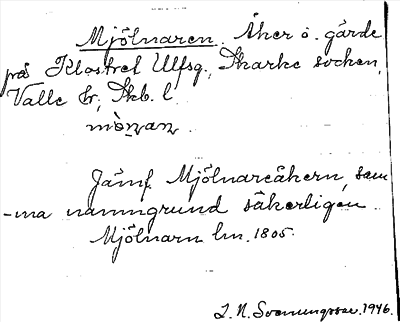 Mjölnaren. Åker o. gärde
på Klostret Ulfsg., Skarke socken,
Valle hr, Skb. l.
Jämf. Mjölnareåkern, sam-
-ma namngrund säkerligen.
Mjölnarn lm. 1805.
1946.